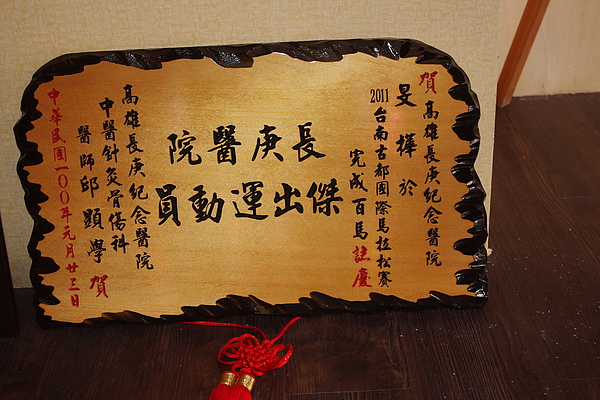 賀 高雄長庚紀念醫院
旻樺於
2011台南古都國際馬拉松賽
完成百馬誌慶
長庚醫院
傑出運動員
高雄長庚紀念醫院
中醫針灸骨傷科
醫師邱顯學 賀
中華民國一〇〇年元月廿三日